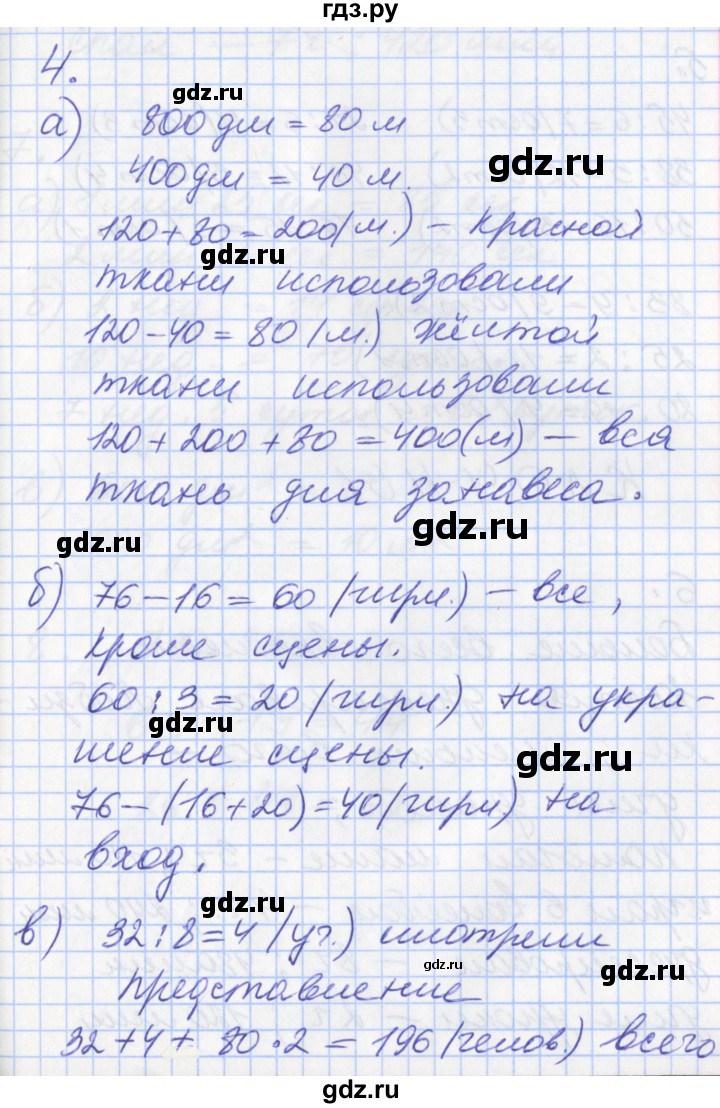 гдз.ру
4.
gdz.ru
а) 800 дм = 80 м
400 дм = 40 м.
gdz.ru
120 + 80 = 200 (м.) – красной
ткани использовали
120 – 40 = 80 (м.) жёлтой
ткани использовали
120 + 200 + 80 = 400 (м) – вся
ткань для занавеса.
gdz.ru
gdz.ru
б) 76 – 16 = 60 (гирл.) – все,
кроме сцены.
60 : 3 = 20 (гирл.) на укра-
шение сцены.
gdz.ru
76 – (16 + 20) = 40 (гирл) на
вход.
gdz.ru
в) 32 : 8 = 4 (уч.) смотрели
gdz.ru
gdz.ru
Представление
32 + 4 + 80 · 2 = 196 (челов.) всего
gdz.ru